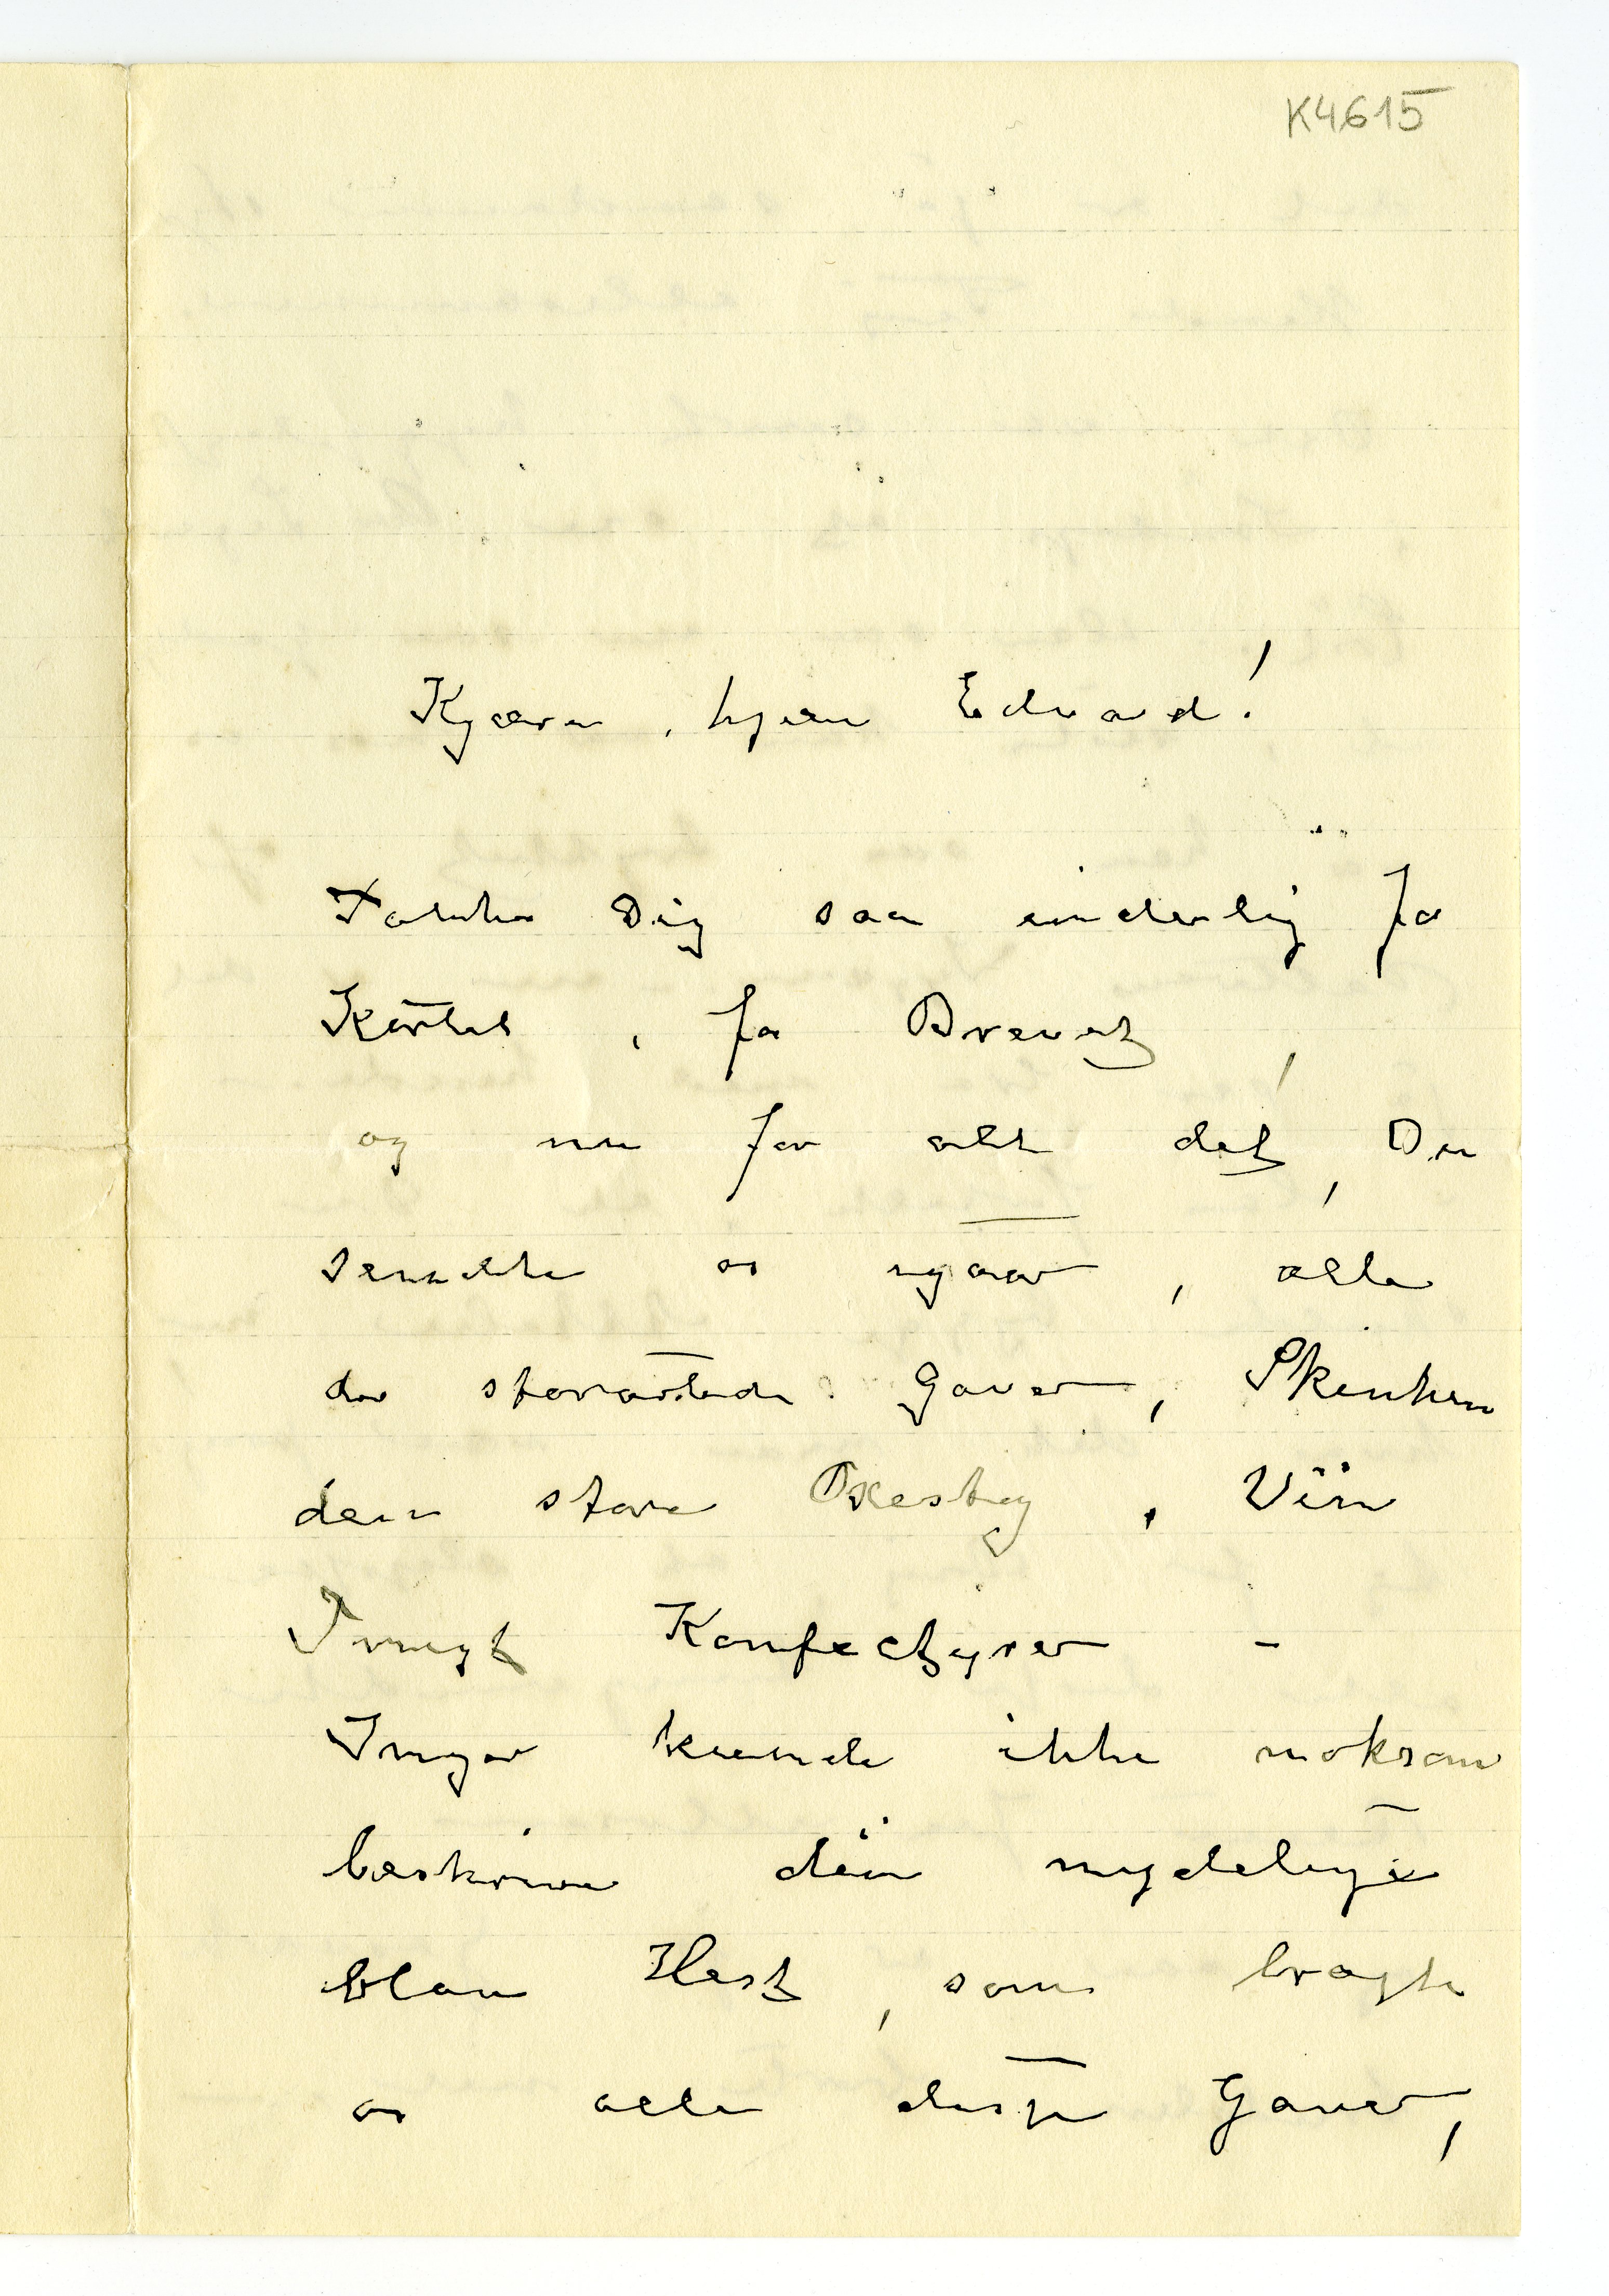 K4615
Kjære, kjære Edvard!
Takke Dig saa inderlig for
Kortet, for Brevet,
og nu for alt det, Du
sendte os igaar, alle
de storartede Gaver, Skinken
den store Oxesteg, Viin
Frugt Konfectyrer –
Inger kunde ikke noksom
beskrive den nydelige
blaa Hest, som bragte
os alle disse Gaver,